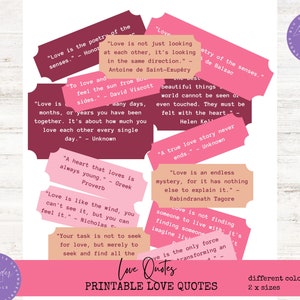 "Love is the poetry of the
senses." – Honor
"Love is not just looking
at each other, it's looking
in the same direction." –
Antoine de Saint-Exupéry
poetry of the senses."
de Balzac
"To love and
feel the sun from
sides." – David Viscott
"Love is
many days,
months, or years you have been
together. It's about how much
you love each other every single
day." – Unknown
beautiful things
world cannot be seen or
even touched. They must be
felt with the heart." –
Helen Kell
"A true love story never
ends." – Unknown
"A heart that loves is
always young." – Greek
Proverb
"Love is an endless
mystery, for it has nothing
else to explain it." –
Rabindranath Tagore
"Love is like the wind, you
can't see it, but you can
feel it." – Nicholas
is not finding
someone to live with. It's
finding
imagine
"Your task is not to seek
for love, but merely to
seek and find all the
is the only force
transforming an
Love Quotes
PRINTABLE LOVE QUOTES
different colo
2 x sizes